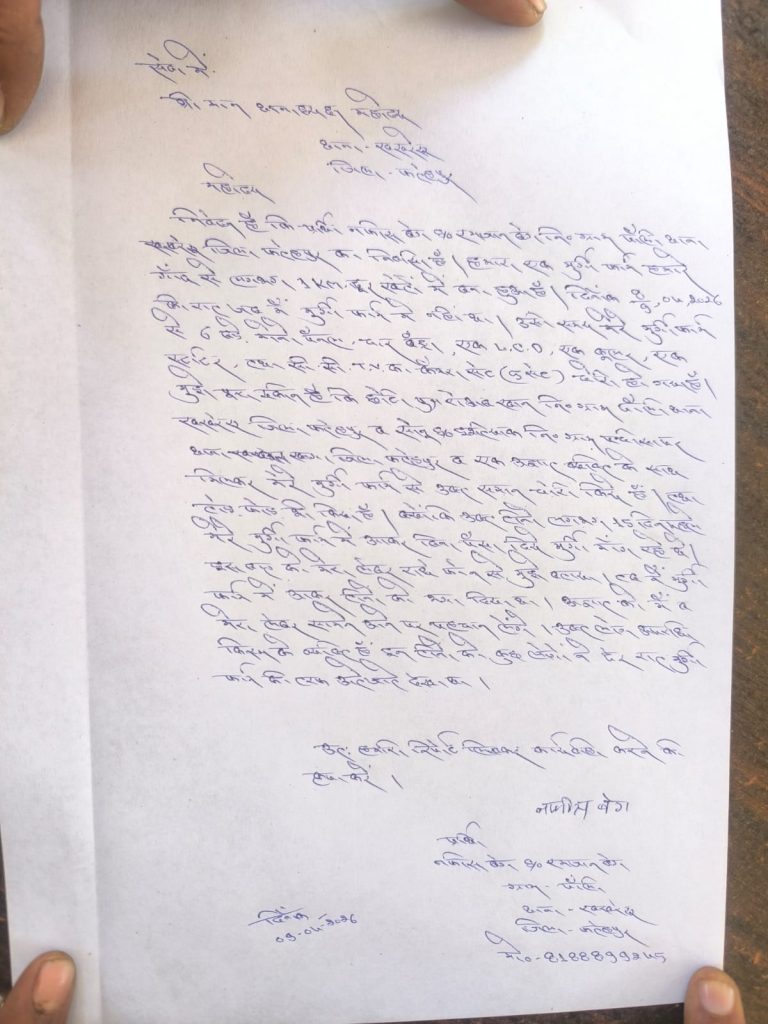 सेवा में
श्री मान थानाध्यक्ष महोदय
थाना - खखरेरु
जिला - फतेहपुर
महोदय
निवेदन है कि प्रार्थी नफिस बेग s/o रमजान बेग नि० ग्राम पौली थाना
खखरेरु जिला फतेहपुर का निवासी है। हमारा एक मुर्गी फार्म हमारे
गाँव से लगभग 1 km. दूर खेतों में बना हुआ है। दिनांक 8/9, 04 2026
की रात जब मैं मुर्गी फार्म में नहीं था। उसी समय मेरे मुर्गी फार्म
से 6 बड़े सोलर पैनल, चार बैट्री, एक L.C.D, एक कूलर, एक
स्टार्टर, तथा सी. सी. T.V. का कैमरा सेट चोरी हो गया है।
मुझे पूरा यकीन है कि छोटे पुत्र नि० ग्राम पौली थाना
खखरेरु जिला फतेहपुर व सोनू s/o नि० ग्राम
थाना जिला फतेहपुर व एक अज्ञात व्यक्ति के साथ
मिलकर मेरे मुर्गी फार्म से उक्त समान चोरी किये हैं। तथा
तोड़ फोड़ भी किया है। क्योंकि उक्त दोनों लगभग 15 दिन पहले
मेरे मुर्गी फार्म में आकर बिना पैसा दिये मुर्गा मांग रहे थे।
इस बात को मेरा लेबर फोन से मुझे बताया। तब मैं मुर्गी
फार्म में आकर दोनों को भगा दिया था। अज्ञात को मैं व
मेरा लेबर सामने आने पर पहचान लेंगे। उक्त लोग अपराधी
किस्म के व्यक्ति हैं इन लोगों को कुछ लोगों ने देर रात मुर्गी
फार्म की तरफ आते जाते देखा था।
अतः हमारी रिपोर्ट लिखकर कार्यवाही करने की
कृपा करें।
नफीस बेग
प्रार्थी
नफिस बेग s/o रमजान बेग
ग्राम - पौली
थाना - खखरेरु
जिला - फतेहपुर
मो० - 8188899245
दिनांक
09-04-2026